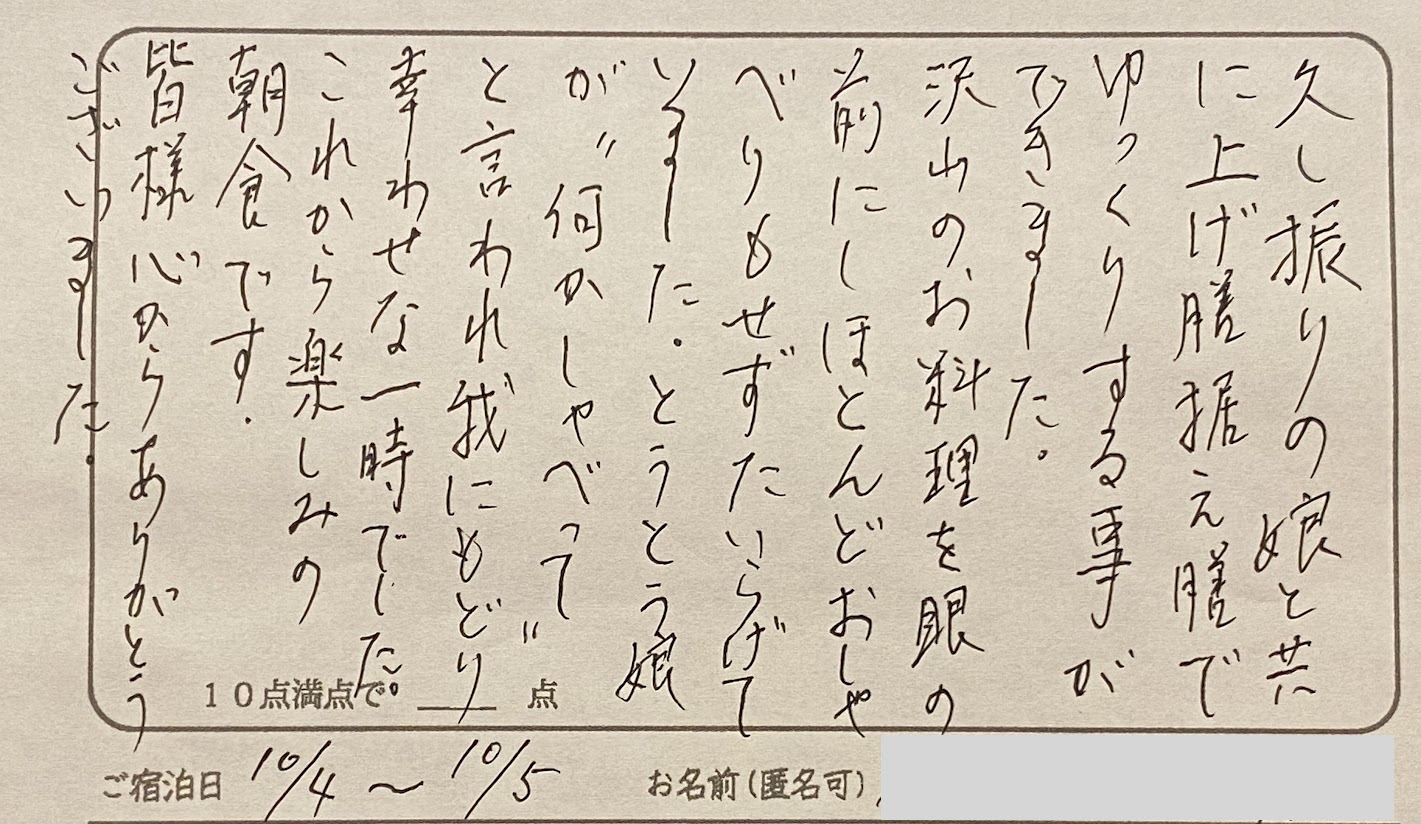 久し振りの娘と共
に上げ膳据え膳で
ゆっくりする事が
できました。
沢山のお料理を眼の
前にしほとんどおしゃ
べりもせずたいらげて
いました。とうとう娘
が〝何かしゃべって〟
と言われ我にもどり
幸わせな一時でした。
これから楽しみの
朝食です.
皆様心からありがとう
ございました。
10点満点で 点
ご宿泊日 10/4 〜 10/5 お名前(匿名可)